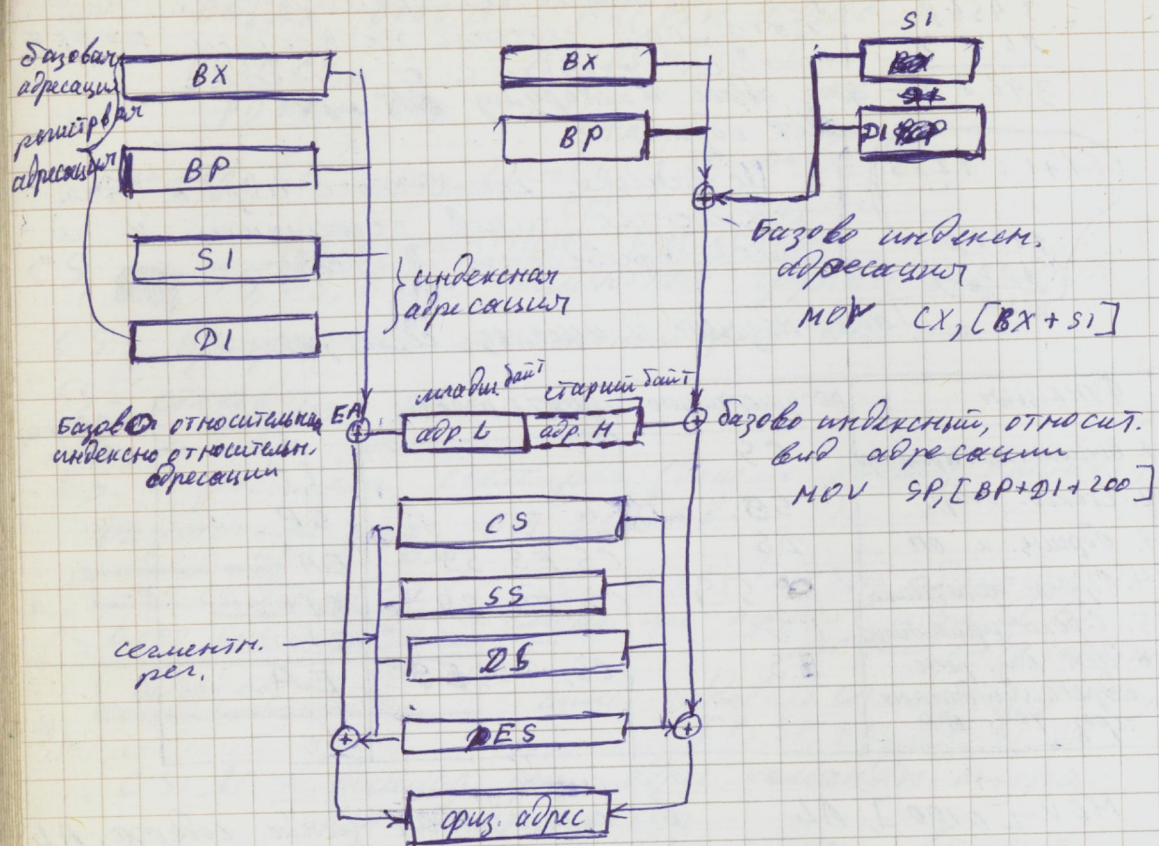 базовая
адресация
BX
регистрвая
адресация
BP
SI
DI
индексная
адресация
BX
BP
SI
DI
Базово индексн.
адресация
MOV CX, [BX + SI]
младш. байт старший байт
Базово относительная EA
индексно относительн.
адресации
адр. L адр. H
базово индексный, относит.
вид адресации
MOV SP, [BP+DI+200]
CS
SS
DS
ES
сегментн.
рег.
физ. адрес